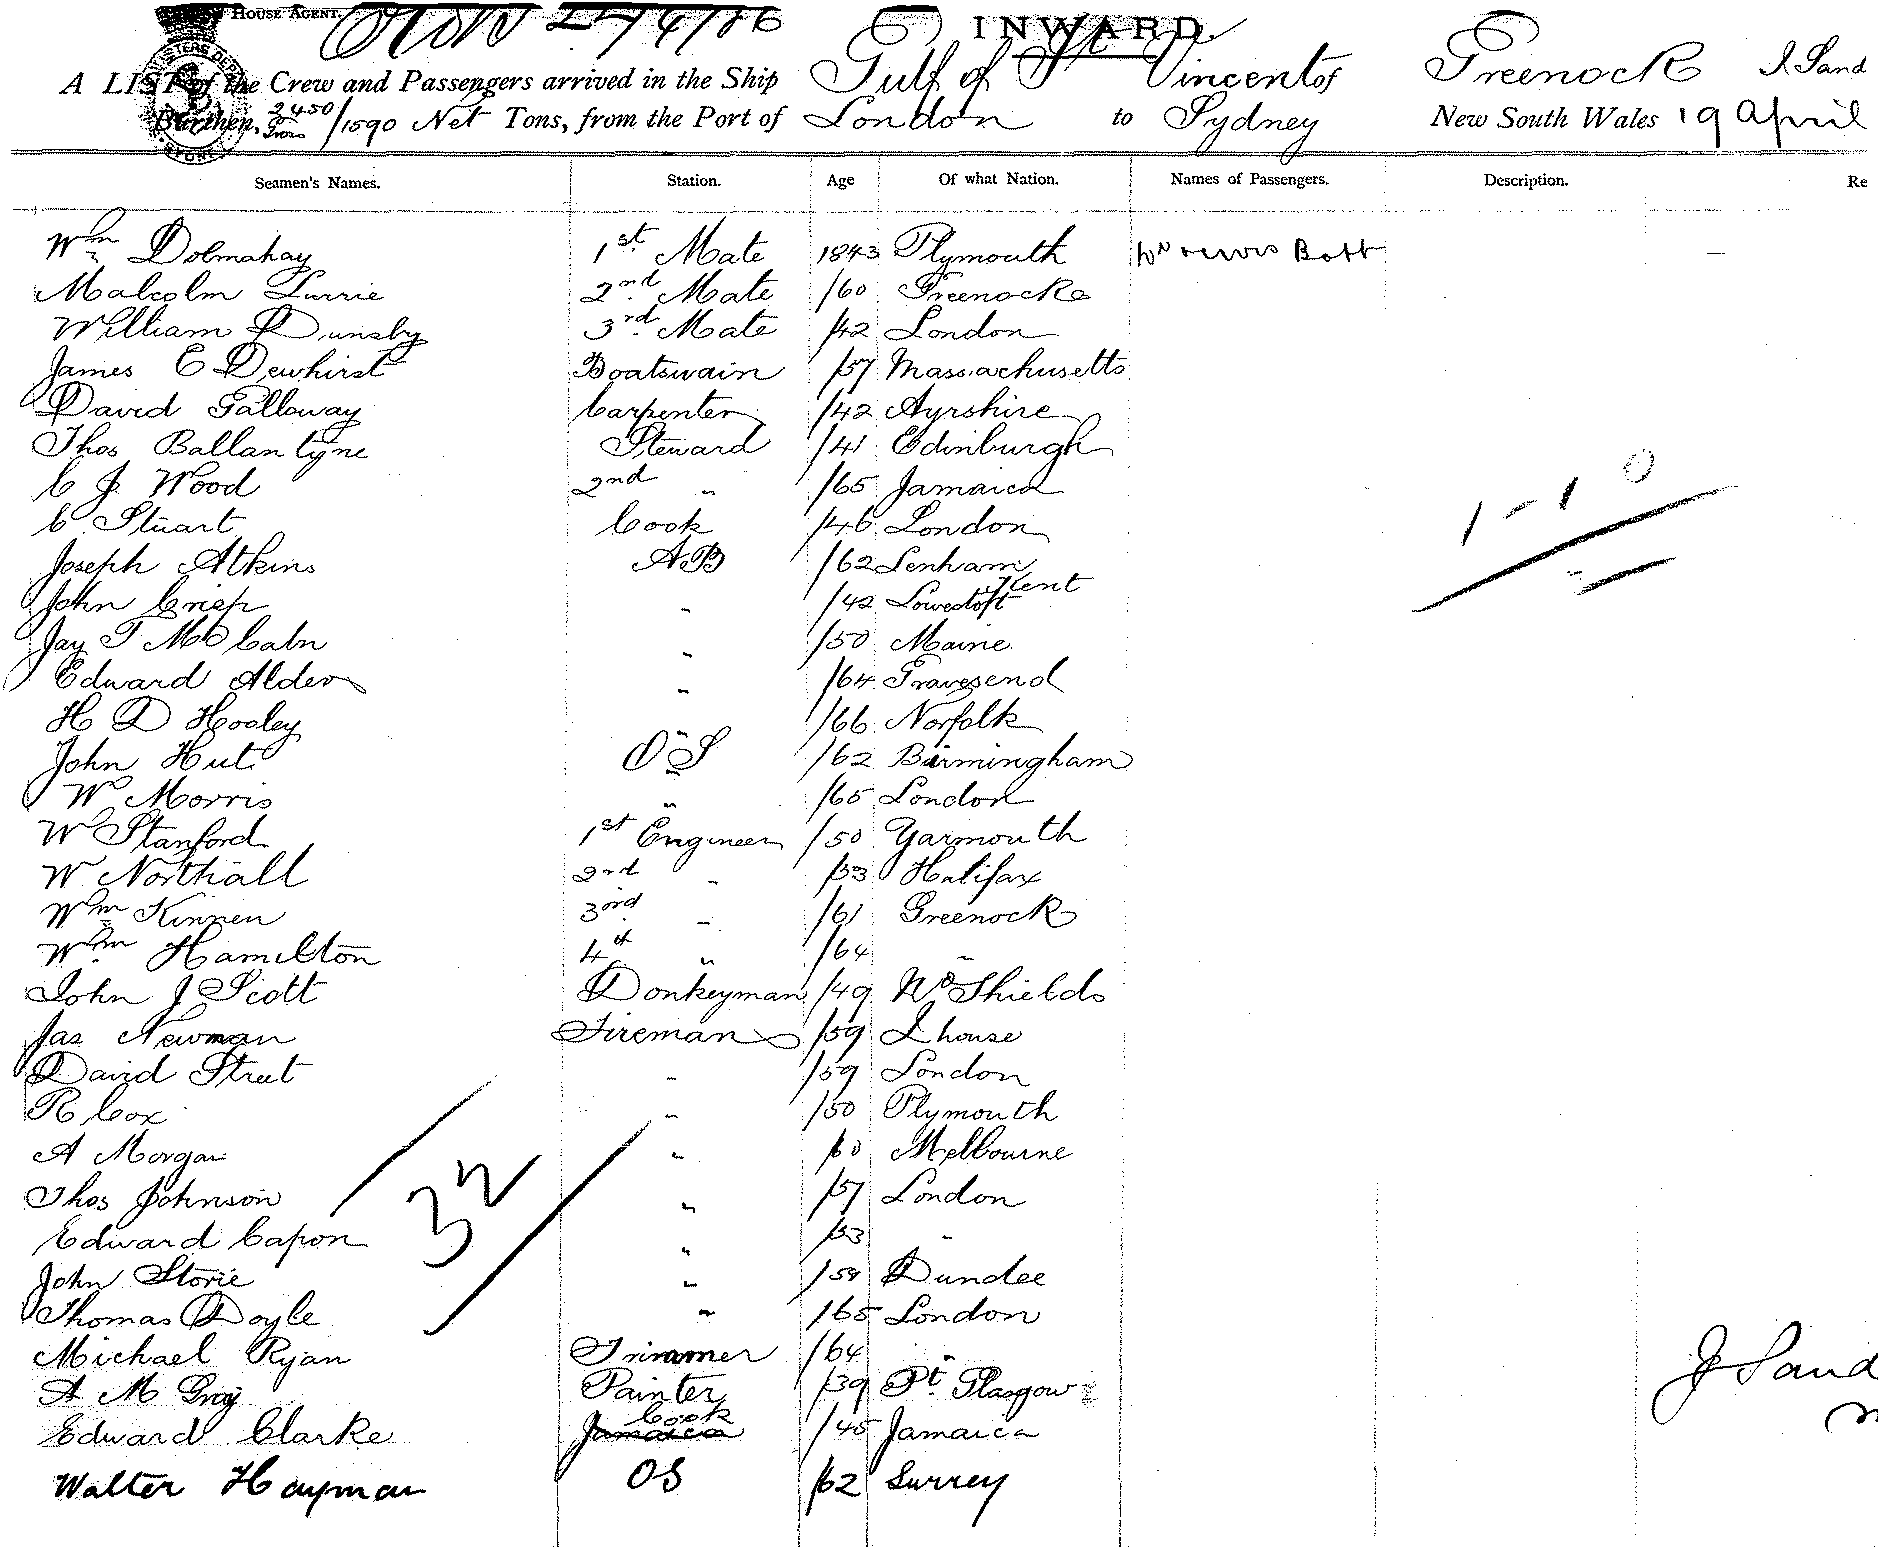 HOUSE AGENT. 27/4/86 INWARD.
A LIST of the Crew and Passengers arrived in the Ship Gulf of St Vincent of Greenock J Sand
Burthen, 2450 /1590 Net Tons, from the Port of London to Sydney New South Wales 19 April
Seamen's Names. Station. Age Of what Nation. Names of Passengers. Description. Re
Wm Dolmahay 1st Mate 1843 Plymouth Bott —
Malcolm Lurrie 2nd Mate /60 Greenock
William Dunsby 3rd Mate /42 London
James E Dewhirst Boatswain /57 Massachusetts
David Galloway Carpenter /42 Ayrshire
Thos Ballantyne Steward /41 Edinburgh
C J Wood 2nd " /65 Jamaica
C Stuart Cook /46 London
Joseph Atkins AB /62 Lenham Kent
John Crisp " /42 Lowestoft
Jay T McCabn " /50 Maine
Edward Alder " /64 Gravesend
H D Hooley " /66 Norfolk
John Hut OS /62 Birmingham
W Morris " /65 London
W Stanford 1st Engineer /50 Yarmouth
W Northall 2nd " /53 Halifax
Wm Kinnen 3rd " /61 Greenock
Wm Hamilton 4th " /64 "
John J Scott Donkeyman /49 No Shields
Jas Newman Fireman /59 L house
David Street " /59 London
R Cox " /50 Plymouth
A Morgan " /60 Melbourne
Thos Johnson " /57 London
Edward Capon " /53 "
32
John Storie " /59 Dundee
Thomas Doyle " /65 London
Michael Ryan Trimmer /64 "
A M Gray Painter /39 Pt Glasgow
Edward Clarke Jamaica Cook /45 Jamaica
Walter Hayman OS /62 Surrey
J Sand